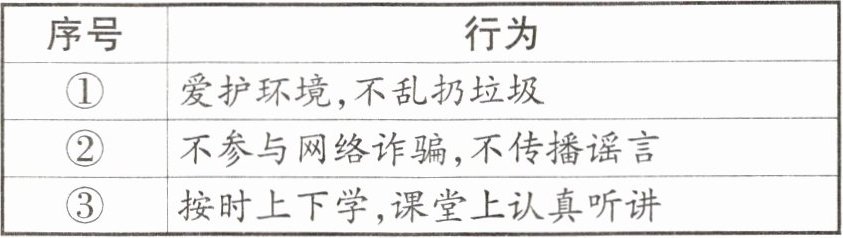 序号 行为
① 爱护环境,不乱扔垃圾
② 不参与网络诈骗,不传播谣言
③ 按时上下学,课堂上认真听讲